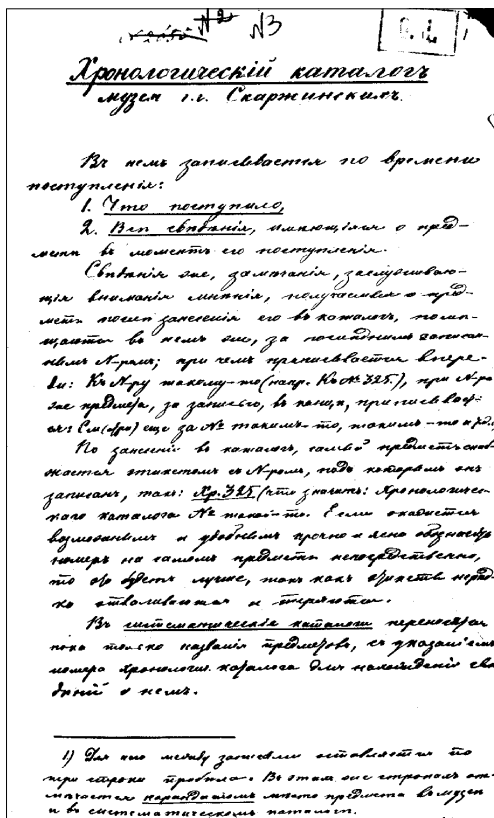 №2 №3
Хронологическій каталогъ
музея г.г. Скаржинскихъ.
Въ немъ записывается по времени
поступленія:
1. Что поступило,
2. Все свѣдѣнія, имѣющіяся о пред-
метѣ въ моментъ его поступленія.
Свѣдѣнія же, замѣчанія, заслуживаю-
щія вниманія мнѣнія, получаемыя о пред-
метѣ послѣ занесенія его въ каталогъ, помѣ-
щаются въ немъ же, за послѣднимъ записан-
нымъ N-ромъ; при чемъ приписывается впере-
ди: Къ N-ру такому-то (напр. Къ № 325), при N-рѣ
же предмета, за записью, въ концѣ, приписывает-
ся: См(отри) еще за № такимъ-то, такимъ-то и
По занесеніи въ каталогъ, самый предметъ снаб-
жается этикетомъ съ N-ромъ, подъ которымъ онъ
записанъ, такъ: Хр. 325 (что значитъ: Хронологичес-
каго каталога № такой-то. Если окажется
возможнымъ и удобнымъ прочно и ясно обозначить
номеръ на самомъ предметѣ непосредственно,
то это будетъ лучше, такъ какъ этикеты нерѣд-
ко отваливаются и теряются.
Въ систематическій каталогъ переносятся
пока только названія предметовъ, съ указаніемъ
номера хронологич. каталога для нахожденія свѣ-
дѣній о немъ.
1) Для чего между записями оставляется по
три строки пробѣла. Въ этихъ же строкахъ от-
мѣчается карандашомъ мѣсто предмета въ музеѣ
и въ систематическомъ каталогѣ.